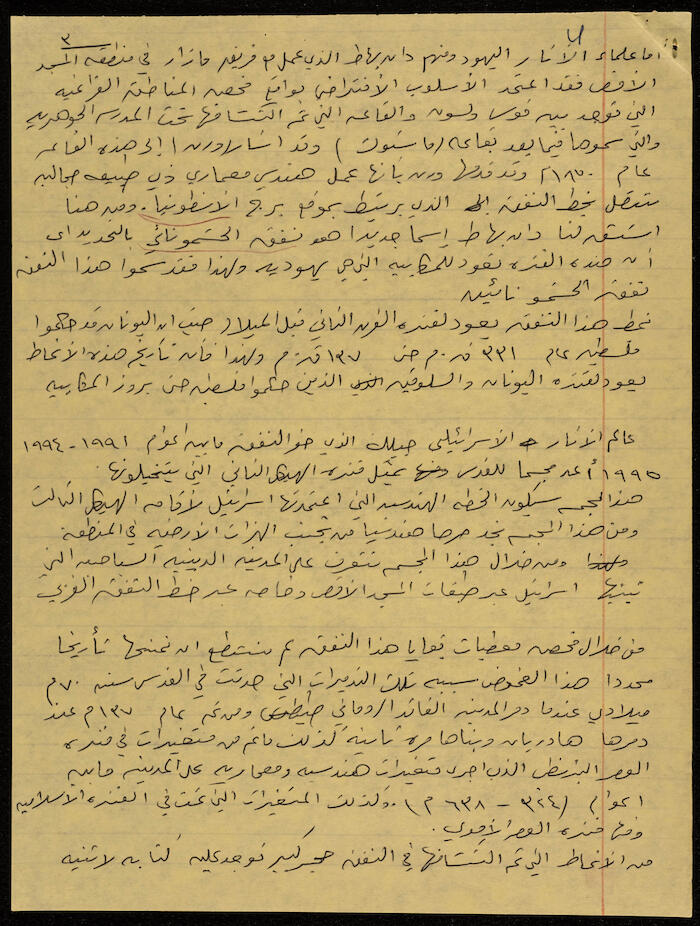 ٣
أما علماء الآثار اليهود ومنهم دان بهاط الذي عمل مع فريق مازار في منطقة المسجد
الأقصى فقد اعتمد الأسلوب الافتراضي بواقع فحصه المناطق الفراغية
التي توجد بين قوس ولسون والقاعة التي تم اكتشافها تحت المدرسة الجوهرية
والتي سموها فيما بعد بقاعة (ماسكوت) وقد أشار وارن إلى هذه القاعة
عام وقد قدمها ورن بأنها عمل هندسي معماري ذي طبيعة جمالية
تتصل بخط النفق الذي يرتبط بموقع برج الأنطونيا. ومن هنا
استق لنا دان بهاط إسماً جديداً هو نفق الحشمونائي بالتحديد اي
أن هذه الفترة تعود للمكابية التي هي يهودية ولهذا فقد سموا هذا النفق
نفق الحشمونائيين
نمط هذا النفق يعود لفترة القرن الثاني قبل الميلاد حيث ان اليونان قد حكموا
فلسطين عام ٣٣١ ق.م حتى ١٣٧ ق.م ولهذا فأن تأريخ هذه الأنماط
يعود لفترة اليونان والسلوقيين الذين حكموا فلسطين حتى بروز المكابية
عالم الآثار الاسرائيلي الذي حفر النفق ما بين اعوام ١٩٩١ - ١٩٩٤
١٩٩٥ أعد مجسماً للقدس تمثل فترة الهيكل الثاني التي يتخيلونها.
هذا المجسم سيكون الخطة الهندسية التي اعتمدتها اسرائيل لأقامة الهيكل الثالث
ومن هذا المجسم نجد حرصاً هندسياً من تجنب الهزات الأرضية في المنطقة
ومن خلال هذا المجسم نتعرف على المدينة الدينية السياحية التي
تبنيها اسرائيل عبر طبقات المسجد الأقصى وخاصة عبر خط النفق الغربي
من خلال فحص معطيات بقايا هذا النفق لم نستطع ان نمنحها تأريخاً
محدداً هذا الغموض سببه تلك التدميرات التي حدثت في القدس سنة ٧٠ م
ميلادي عندما دمر المدينة القائد الروماني طيطس ومن ثم عام ١٣٧ م عند
دمرها هادريان وبناها مرة ثانية كذلك ما تم من متغيرات في فترة
العصر البيزنطي الذي اجرى متغيرات هندسية ومعمارية على المدينة ما بين
اعوام (٣٢٤ - ٦٣٨ م). وكذلك المتغيرات التي تمت في الفترة الاسلامية
ومنها فترة العصر الأموي.
من الأنماط التي تم اكتشافها في النفق حجر كبير توجد عليه كتابة لاتنية